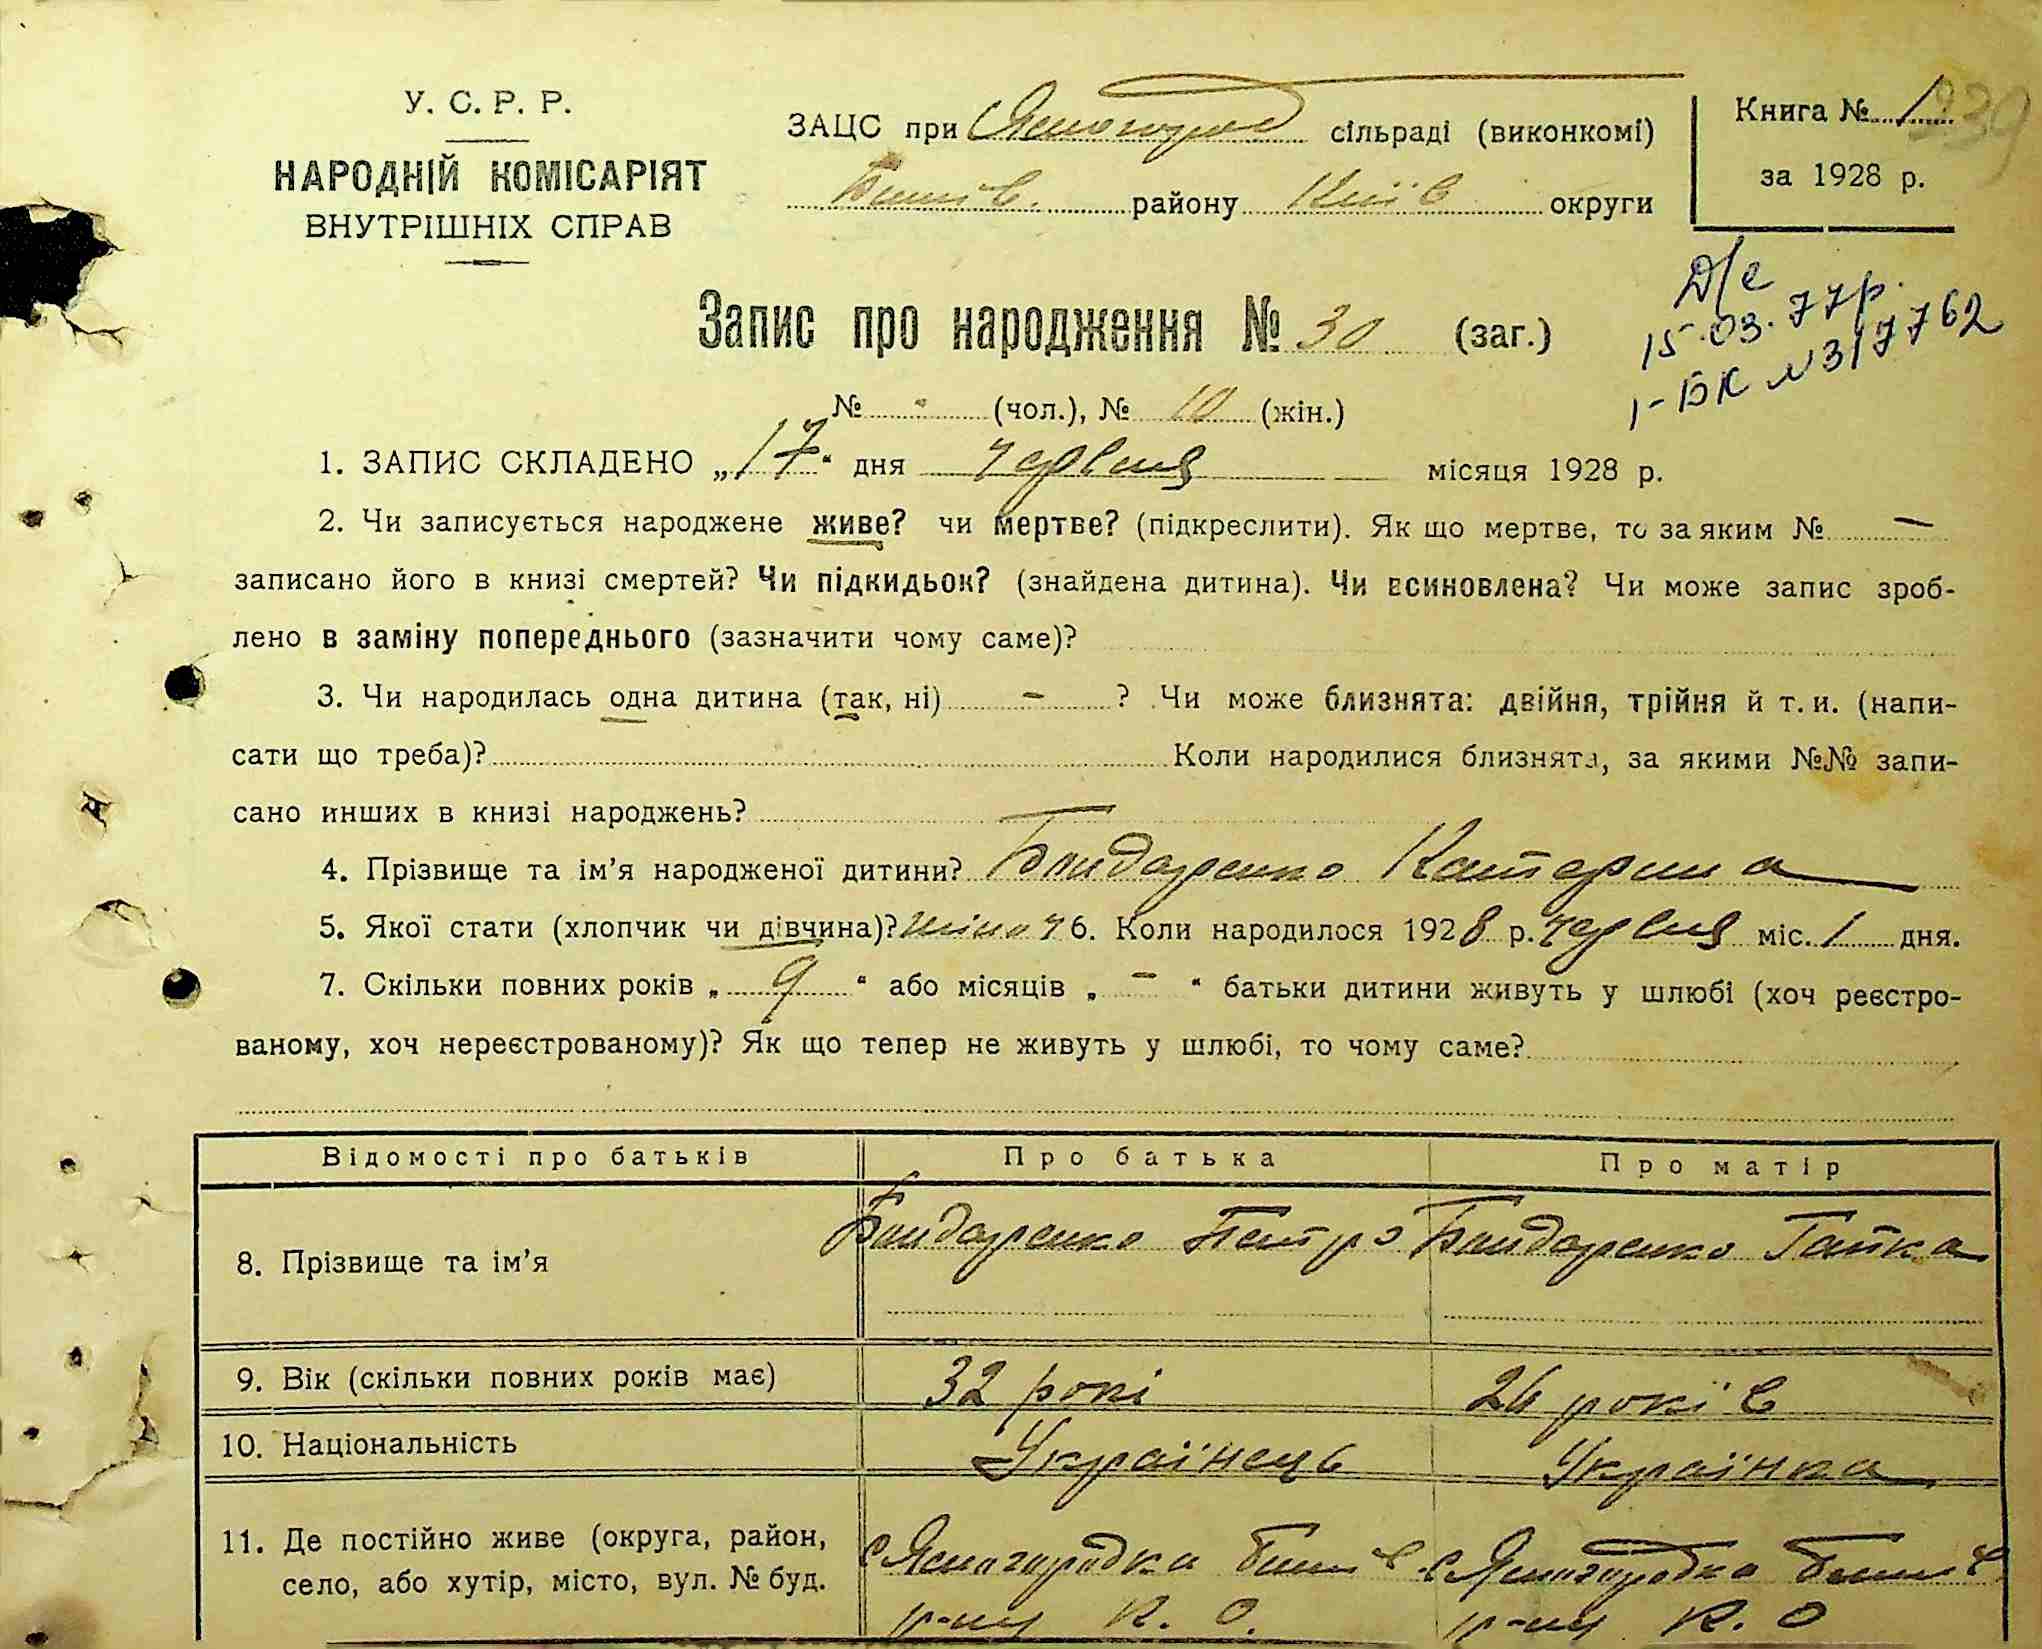 У. С. Р. Р.
НАРОДНІЙ КОМІСАРІЯТ
ВНУТРІШНІХ СПРАВ
ЗАЦС при Ясногород сільраді (виконкомі)
Бишів. району Київ округи
Книга № 1
за 1928 р.
Запис про народження № 30 (заг.)
Д/с
15.03.77р.
І-БК №317762
№ - (чол.), № 10 (жін.)
1. ЗАПИС СКЛАДЕНО „17“ дня червня місяця 1928 р.
2. Чи записується народжене живе? чи мертве? (підкреслити). Як що мертве, то за яким № —
записано його в книзі смертей? Чи підкидьок? (знайдена дитина). Чи всиновлена? Чи може запис зроб-
лено в заміну попереднього (зазначити чому саме)?
3. Чи народилась одна дитина (так, ні) - ? Чи може близнята: двійня, трійня й т. и. (напи-
сати що треба)? Коли народилися близнята, за якими №№ запи-
сано инших в книзі народжень?
4. Прізвище та ім’я народженої дитини? Бондаренко Катерина
5. Якої стати (хлопчик чи дівчина)? жіноч 6. Коли народилося 1928 р. червня міс. 1 дня.
7. Скільки повних років „ 9 “ або місяців „ — “ батьки дитини живуть у шлюбі (хоч реєстро-
ваному, хоч нереєстрованому)? Як що тепер не живуть у шлюбі, то чому саме?
Відомості про батьків Про батька Про матір
8. Прізвище та ім’я Бондаренко Петро Бондаренко Гапка
9. Вік (скільки повних років має) 32 рокі 26 років
10. Національність Українець Українка
11. Де постійно живе (округа, район, с Ясногородка Бишів с Ясногородка Бишів
село, або хутір, місто, вул. № буд. р-ну К. О. р-ну К. О